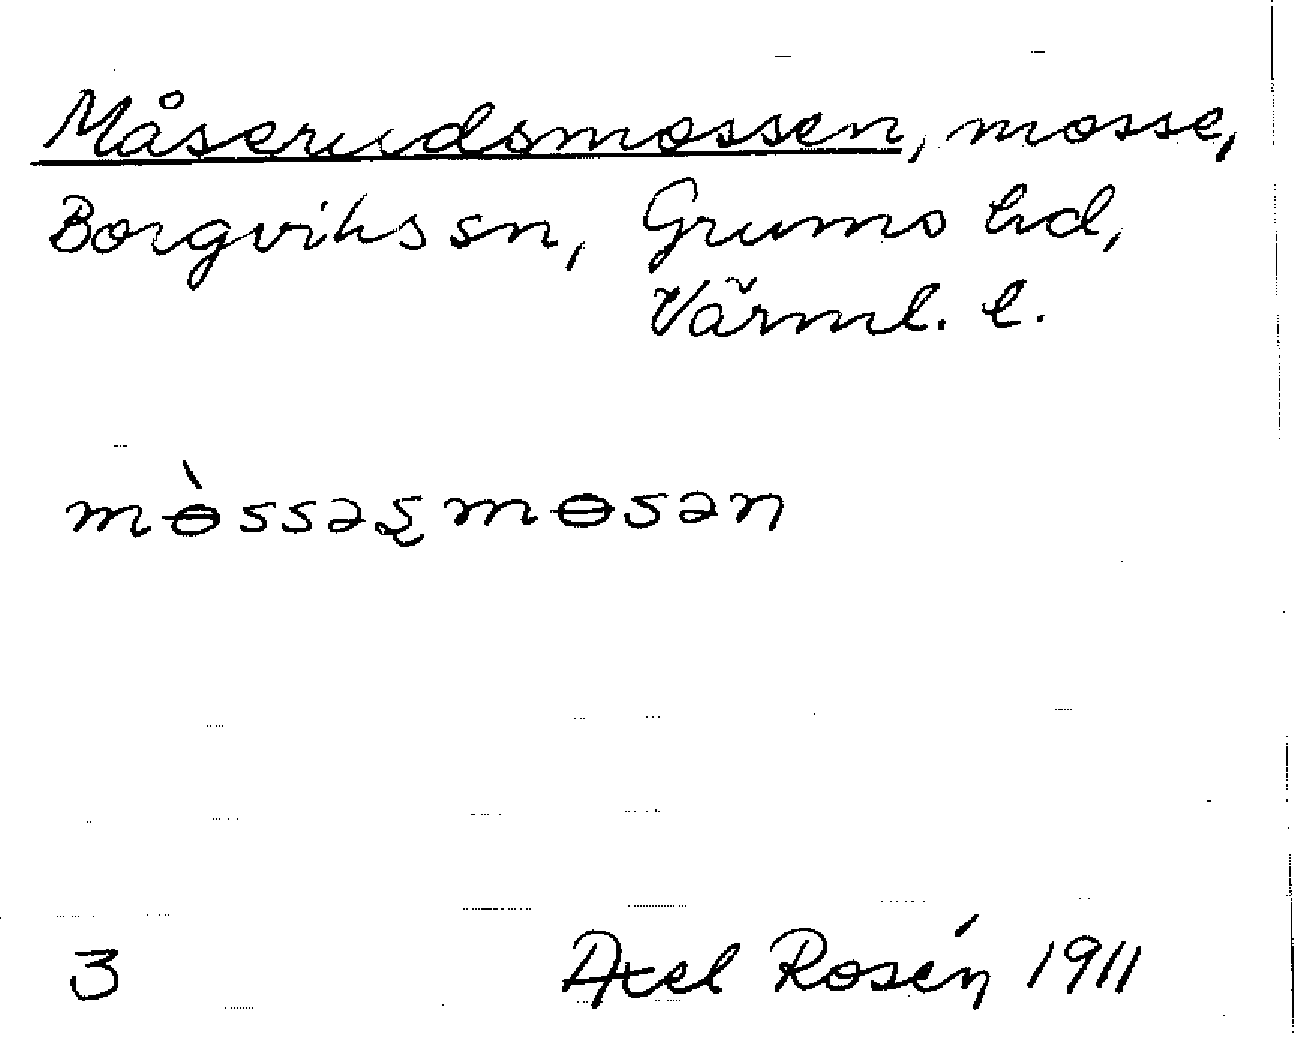 Måserudsmossen, mosse,
Borgviks sn, Grums hd,
Värml. l.
mɵ̀ssəʂmɵsən
3 Axel Rosén 1911